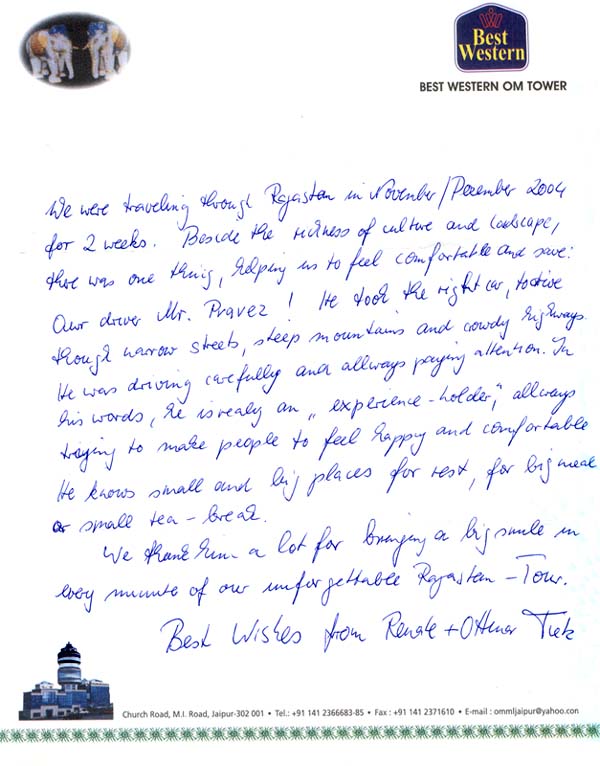 Best
Western
BEST WESTERN OM TOWER
We were traveling through Rajastan in November/December 2004
for 2 weeks. Beside the richness of culture and landscape,
there was one thing, helping us to feel comfortable and save:
Our driver Mr. Pravez! He took the right car, to drive
though narrow streets, steep mountains and crowdy highways.
He was driving carefully and allways paying attention. In
his words, he is realy an „experience-holder", allways
trying to make people to feel happy and comfortable
He knows small and big places for rest, for big meal
or small tea-break.
We thank him a lot for bringing a big smile in
every minute of our unforgettable Rajastan-Tour.
Best Wishes from Renate + Ottmar
Church Road, M.I. Road, Jaipur-302 001 • Tel.: +91 141 2366683-85 • Fax : +91 141 2371610 • E-mail : ommljaipur@yahoo.con